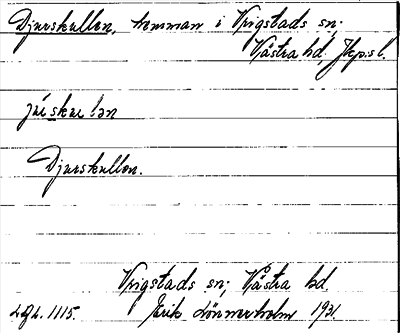 Djurskullen, hemman i Vrigstads sn;
Västra hd, Jkp.sl.
jú̄skuɩɩən
Djurskullen.
Vrigstads sn; Västra hd.
Lgh. 1115. Erik Lönnerholm 1931